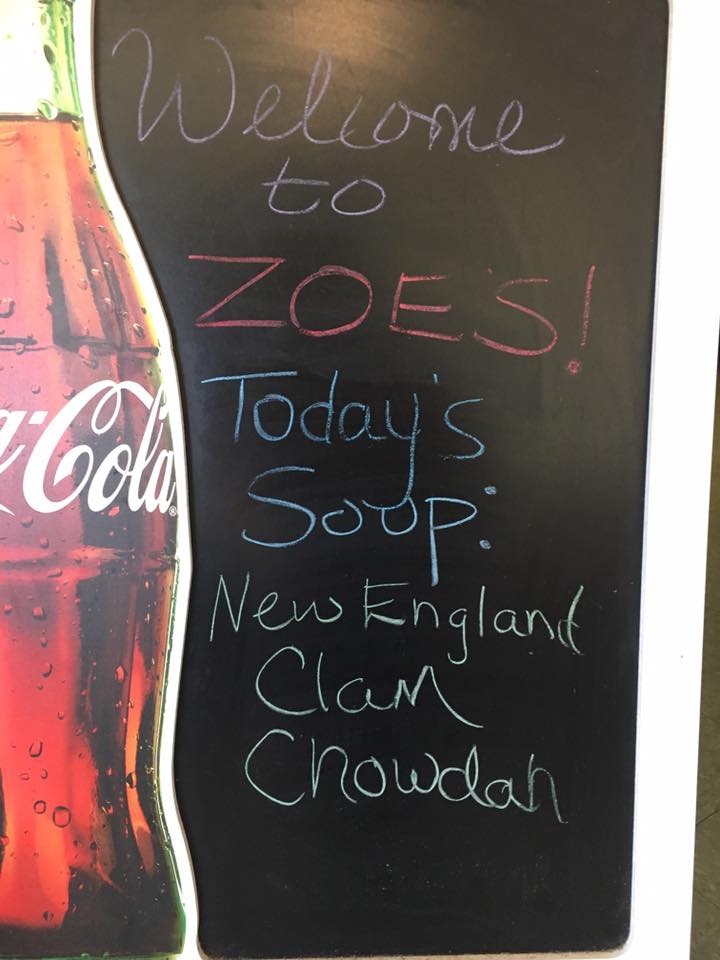 Welcome
to
ZOE'S!
Today's
Soup:
New England
Clam
Chowdah
a-Cola